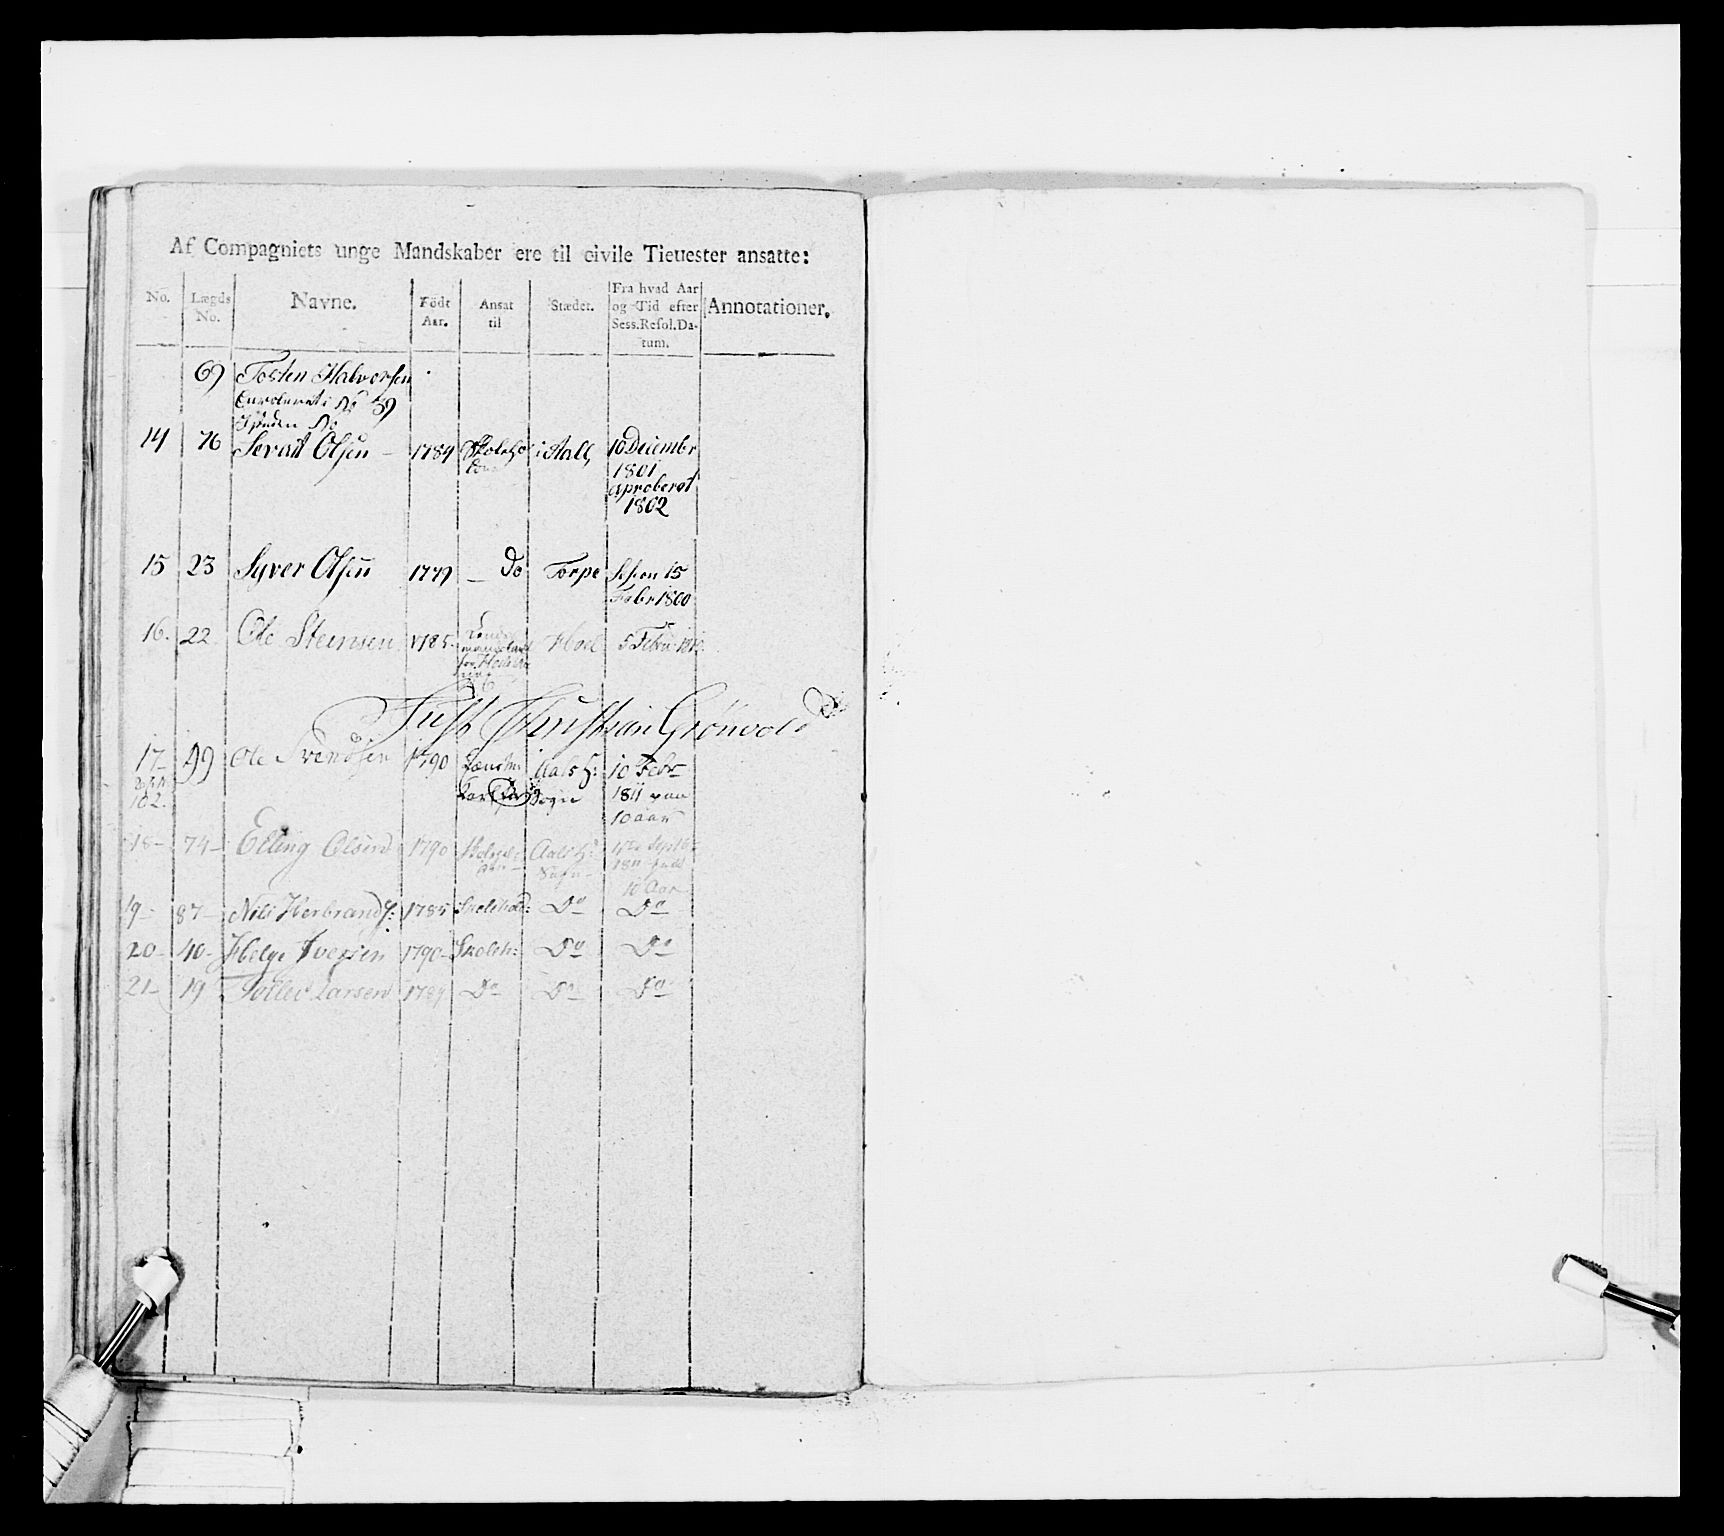 Af Compagniets unge Mandskaber ere til civile Tieuester ansatte:
No. Lægds No. Navne. Födt Aar. Ansat til Stædet. Fra hvad Aar og Tid efter Sess.Resol.Datum. Annotationer.
69 Tosten Halvorsen
No 59
No
14 76 Olsen 1784 i Aall 10 Decembr
1801
aproberet
1802
15 23 Syver Olsen 1779 — do Torpe 15
Febr 1800
16. 22 Ole Steinsen 1785 Hoel 5 Febru
Just Christian Grönvold
17 99 Ole Svendsen 1790 Aals H: 10 Febr
Sogn 1811 paa
102. 10 aar
18 74 Elling Olsen 1790 Aals H: Septb
Sogn 1811
10 Aar
19 87 Nils Herbrands: 1785 Skolehold: Do Do
20 40 Helge Iversen 1790 Skoleh: Do Do
21 19 Tollev Larsen 1789 Do Do Do